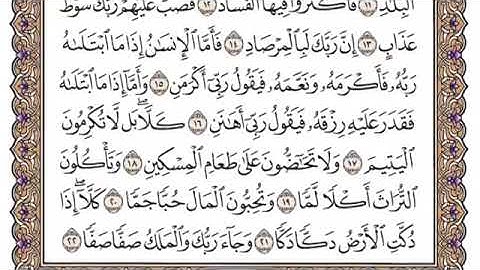 ٱلۡبِلَٰدِ ١١ فَأَكۡثَرُواْ فِيهَا ٱلۡفَسَادَ ١٢ فَصَبَّ عَلَيۡهِمۡ رَبُّكَ سَوۡطَ
عَذَابٍ ١٣ إِنَّ رَبَّكَ لَبِٱلۡمِرۡصَادِ ١٤ فَأَمَّا ٱلۡإِنسَٰنُ إِذَا مَا ٱبۡتَلَىٰهُ
رَبُّهُۥ فَأَكۡرَمَهُۥ وَنَعَّمَهُۥ فَيَقُولُ رَبِّيٓ أَكۡرَمَنِ ١٥ وَأَمَّآ إِذَا مَا ٱبۡتَلَىٰهُ
فَقَدَرَ عَلَيۡهِ رِزۡقَهُۥ فَيَقُولُ رَبِّيٓ أَهَٰنَنِ ١٦ كَلَّاۖ بَل لَّا تُكۡرِمُونَ
ٱلۡيَتِيمَ ١٧ وَلَا تَحَٰٓضُّونَ عَلَىٰ طَعَامِ ٱلۡمِسۡكِينِ ١٨ وَتَأۡكُلُونَ
ٱلتُّرَاثَ أَكۡلٗا لَّمّٗا ١٩ وَتُحِبُّونَ ٱلۡمَالَ حُبّٗا جَمّٗا ٢٠ كَلَّآۖ إِذَا
دُكَّتِ ٱلۡأَرۡضُ دَكّٗا دَكّٗا ٢١ وَجَآءَ رَبُّكَ وَٱلۡمَلَكُ صَفّٗا صَفّٗا ٢٢